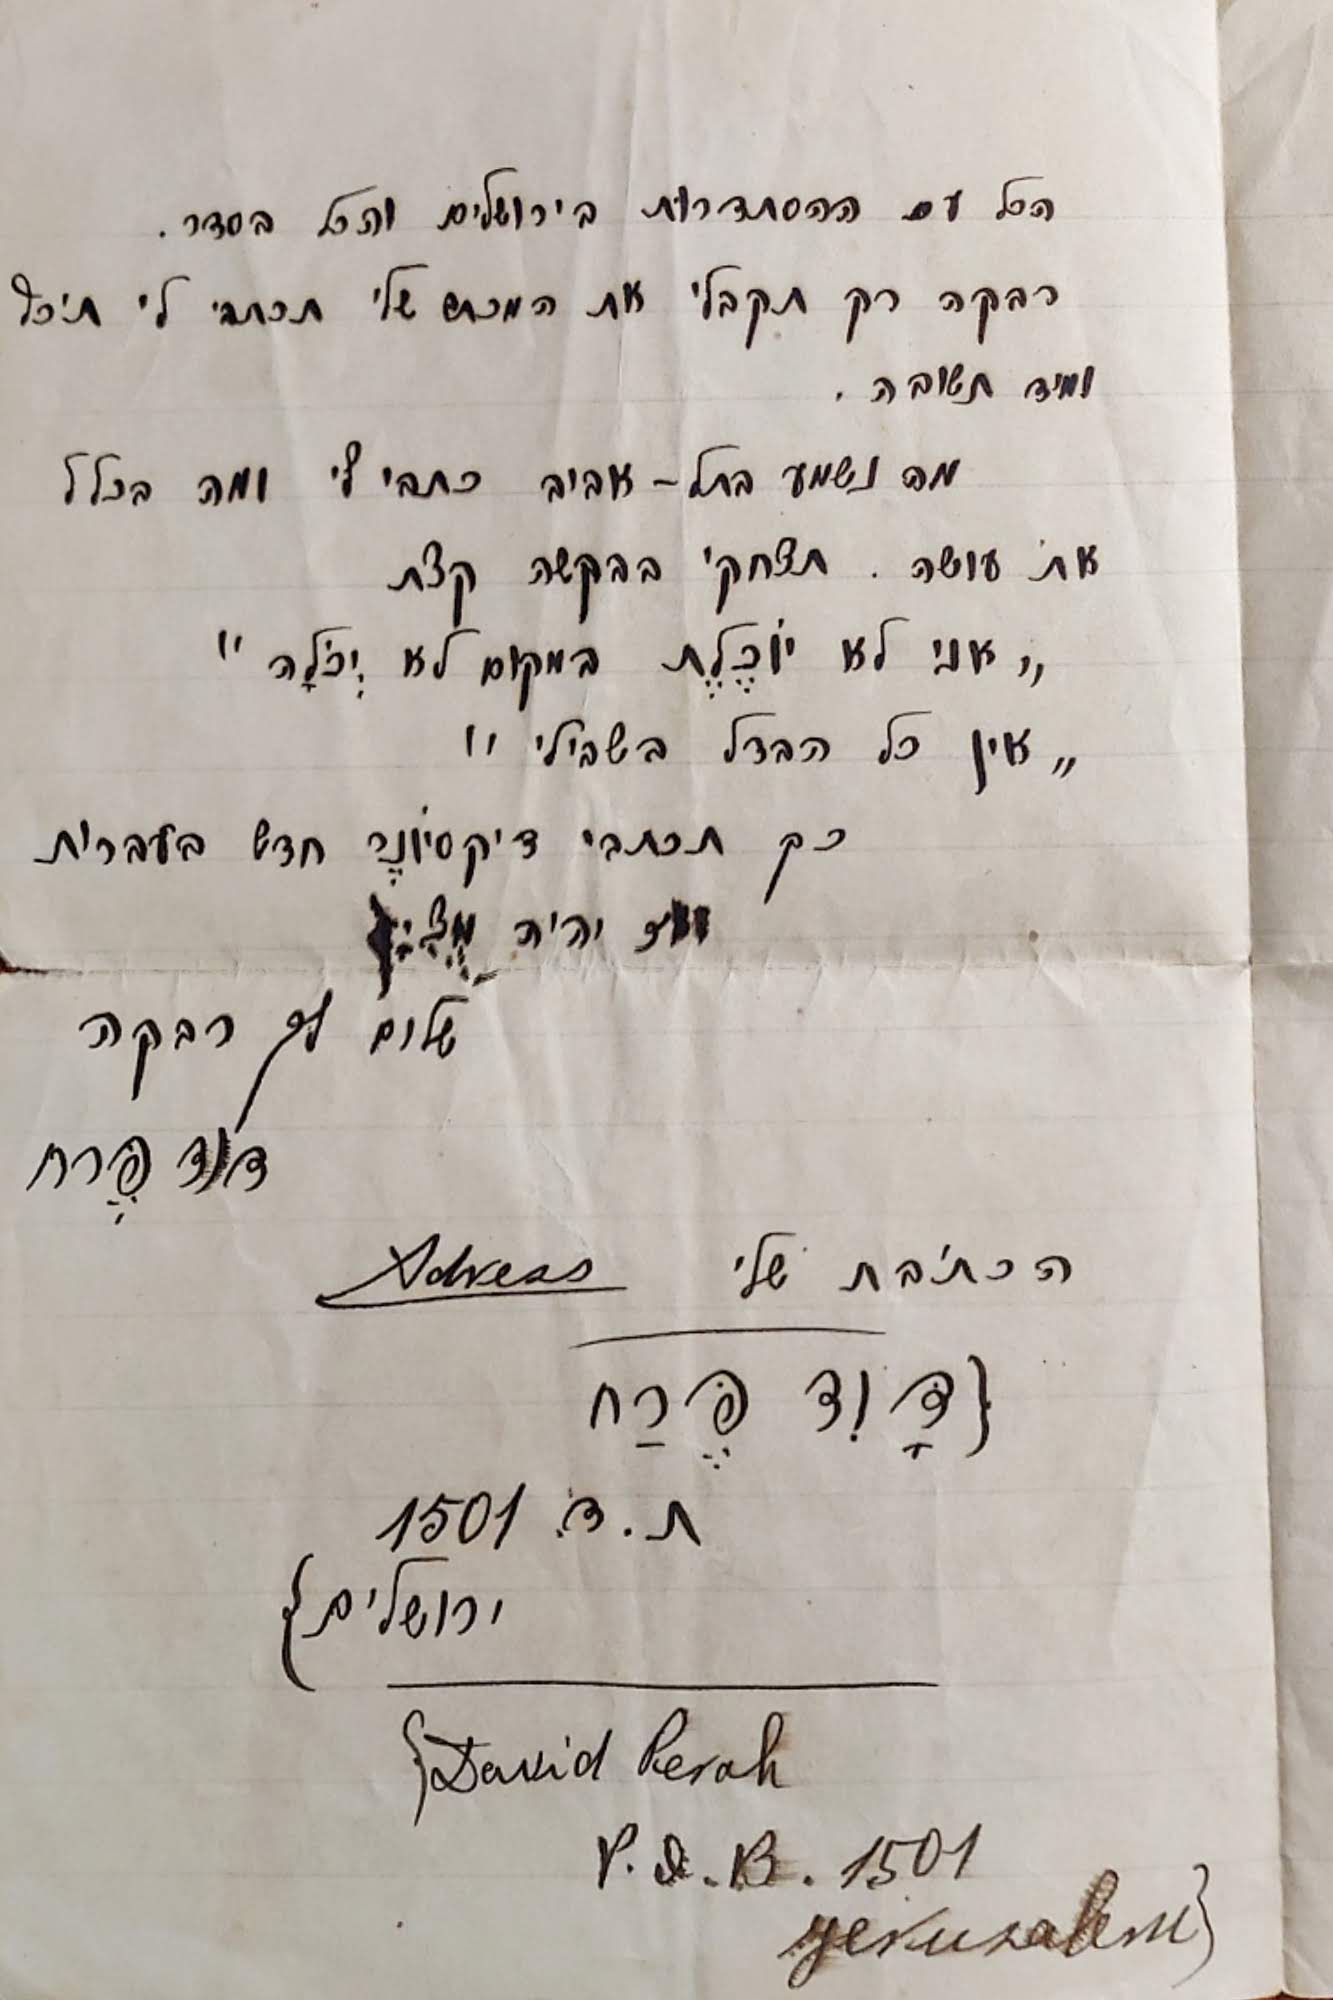 הכל עם ההסתדרות בירושלים והכל בסדר.
רבקה רק תקבלי את המכתב שלי תכתבי לי תיכף
ומיד תשובה.
מה נשמע בתל-אביב כתבי לי ומה בכלל
את עושה. תצחקי בבקשה קצת
„אני לא יוֹכֶלֶת במקום לא יְכֹלָה"
„אין כל הבדל בשבילי"
כך תכתבי דיקסיוֹנֶר חדש בעברית
אז יהיה
שלום לך רבקה
דוד פֶּרח
הכתובת שלי Adress
{דָּוִד פֶּרַח
ת.ד. 1501
ירושלים}
{David Perah
P.O.B. 1501
Yerusalem}